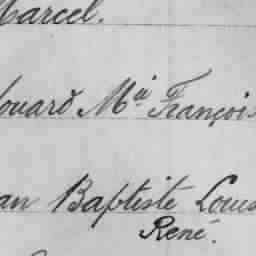 Marcel.
douard Mie François
an Baptiste Louis
René.